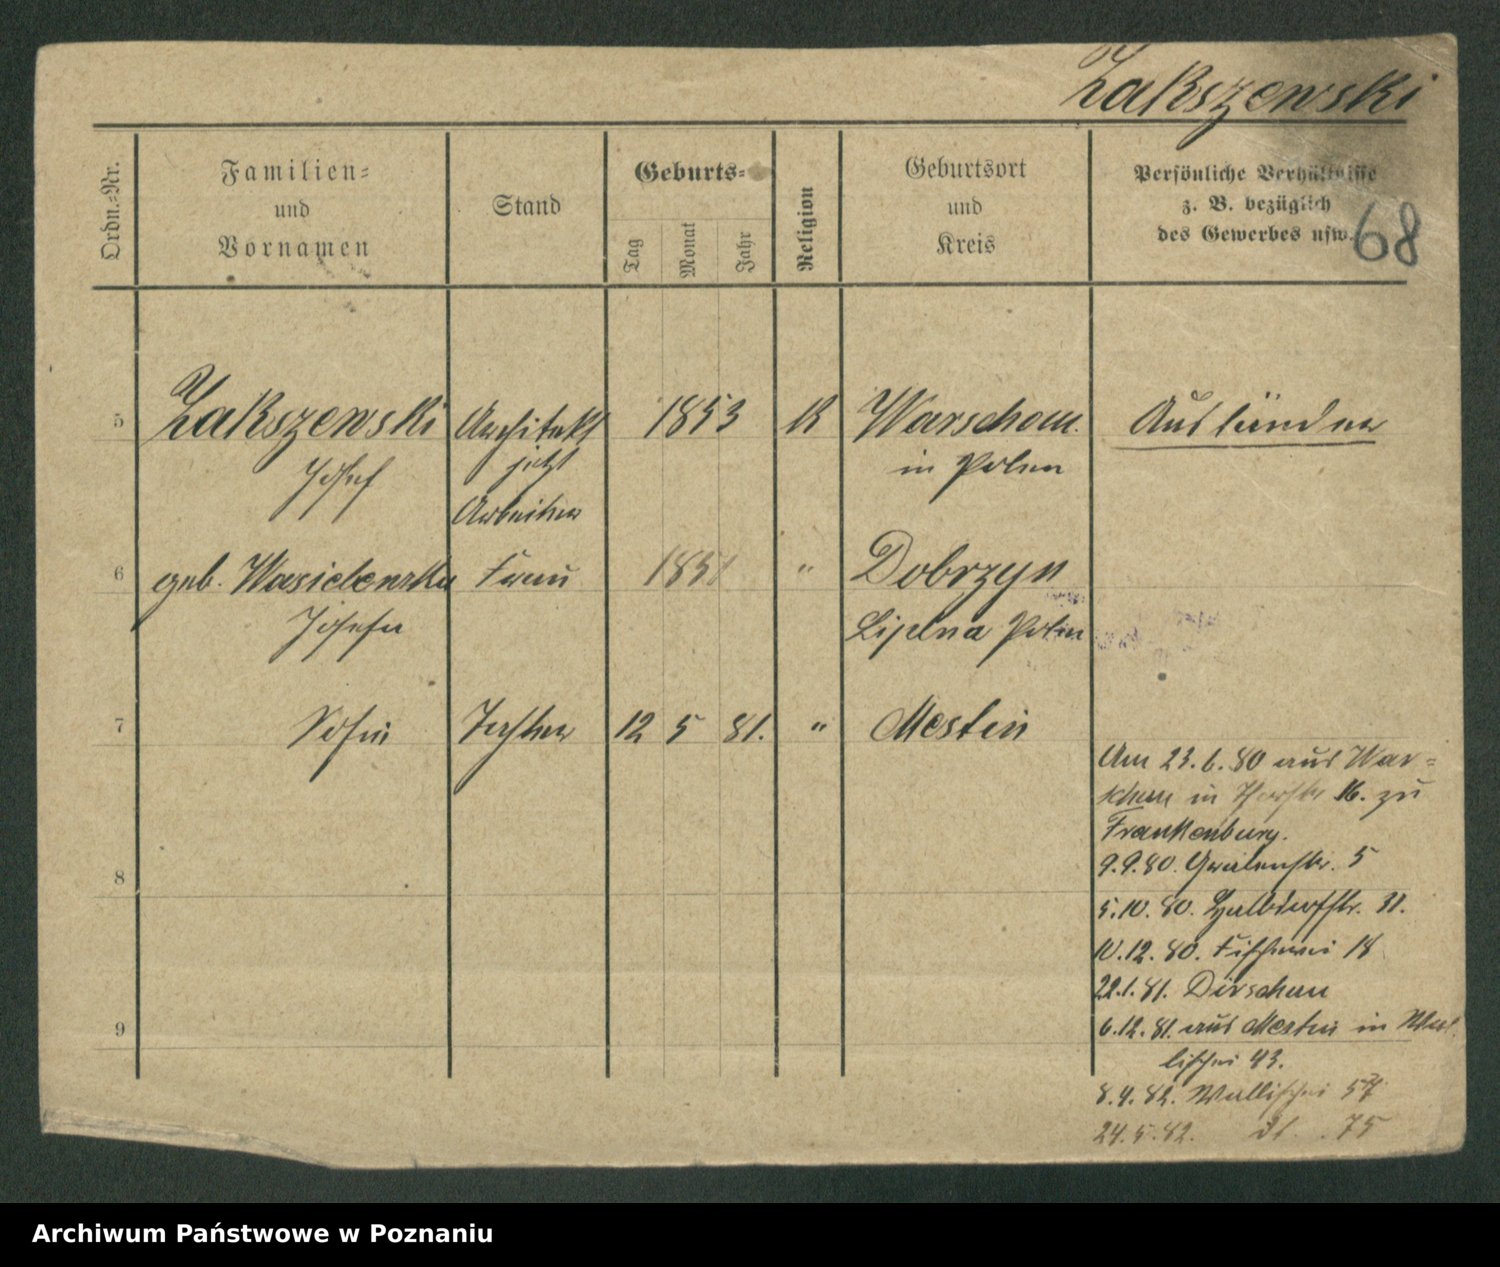 Zakszewski
Ordn.-Nr.
Familien-
und
Vornamen
Stand
Geburts-
Tag
Monat
Jahr
Religion
Geburtsort
und
Kreis
Persönliche Verhältnisse
z. B. bezüglich
des Gewerbes usw.
68
5 Zakszewski Architekt 1853 R Warschau Ausländer
Josef jetzt in Polen
Arbeiter
6 geb. Frau 185 " Dobrzyn
Josefa Lipna Polen
7 Sofia Tochter 12 5 81. " Mestin
Am 23.6.80 aus War-
schau in 16. zu
Frankenburg.
8
9.9.80. Grabenstr. 5
5.10.80. Halbdorfstr. 31.
10.12.80. Fischerei 18
22.1.81. Dirschau
9
6.12.81. aus Mestin in Wal
lischei 43.
8.4.82. Wallischei 57
24.5.82. 75
Archiwum Państwowe w Poznaniu